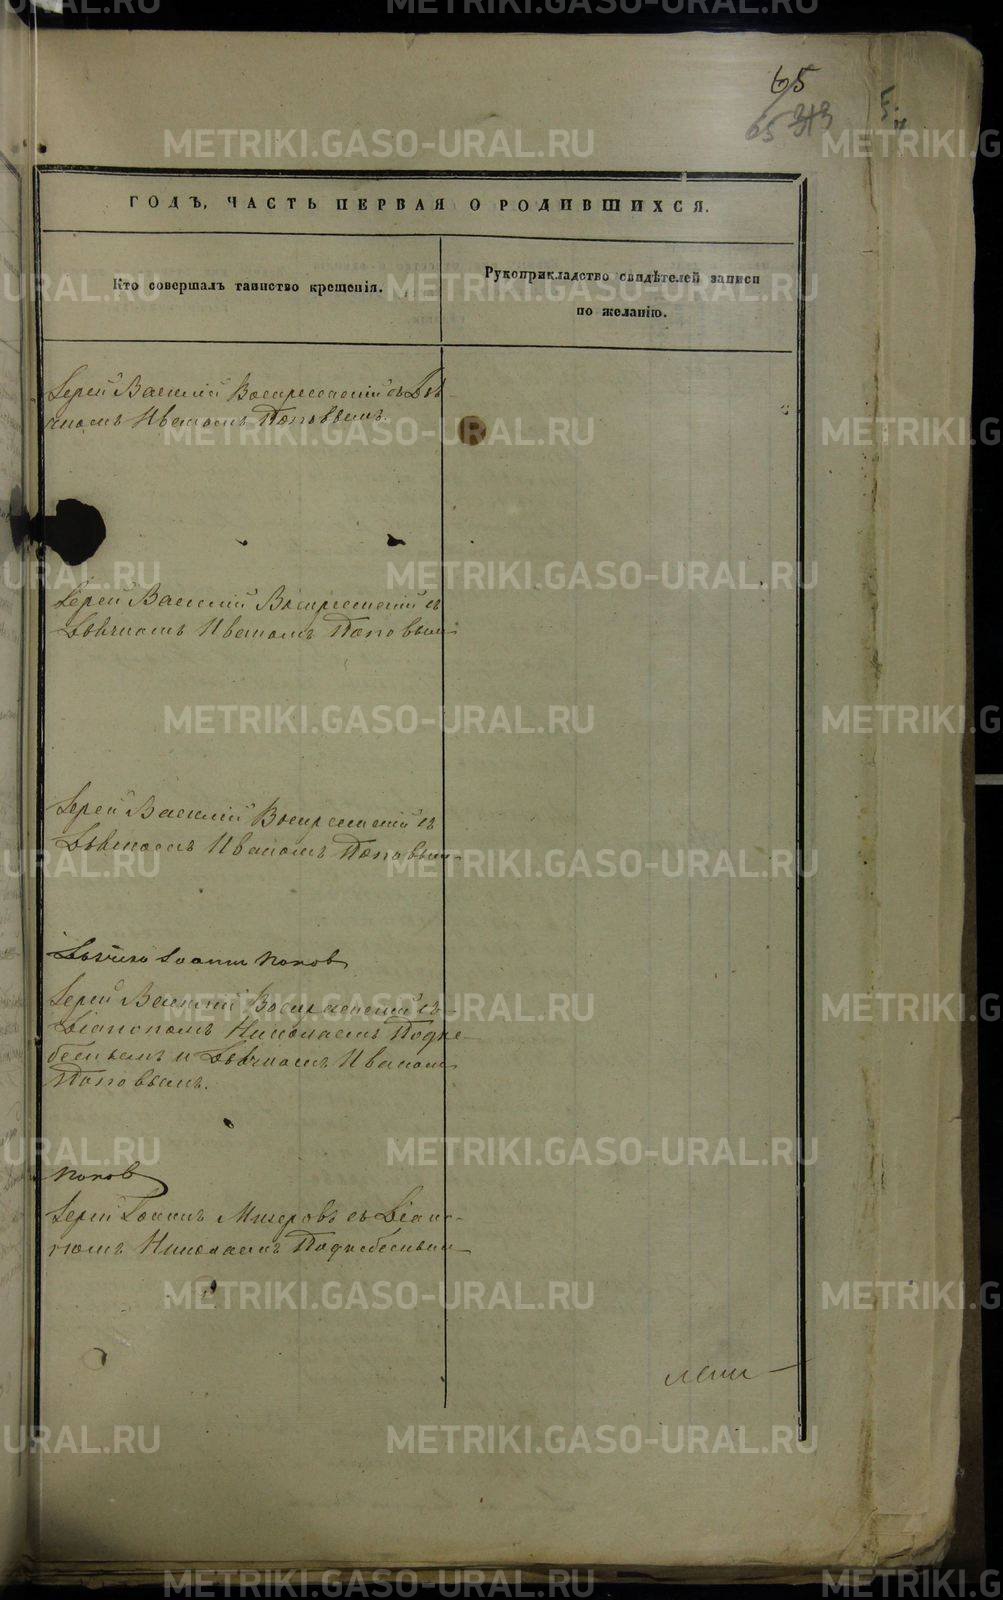 65
65 313
ГОДЪ, ЧАСТЬ ПЕРВАЯ О РОДИВШИХСЯ.
Кто совершалъ таинство крещенія.
Рукоприкладство свидѣтелей записи
по желанію.
Іерей Василій Воскресенскій съ Дья-
чкомъ Иваномъ Поповымъ.
Іерей Василій Воскресенскій съ
Дьячкомъ Иваномъ Поповым
Іерей Василій Воскресенскій съ
Дьячкомъ Иваномъ Поповым
Дьячекъ Іоанн Попов
Іерей Василій Воскресенскій съ
Діакономъ Николаемъ Подне-
беснымъ и Дьячкомъ Иваном
Поповымъ.
Попов
Іерей Іоаннъ Мизеровъ съ Діако-
номъ Николаемъ Поднебесным
METRIKI.GASO-URAL.RU